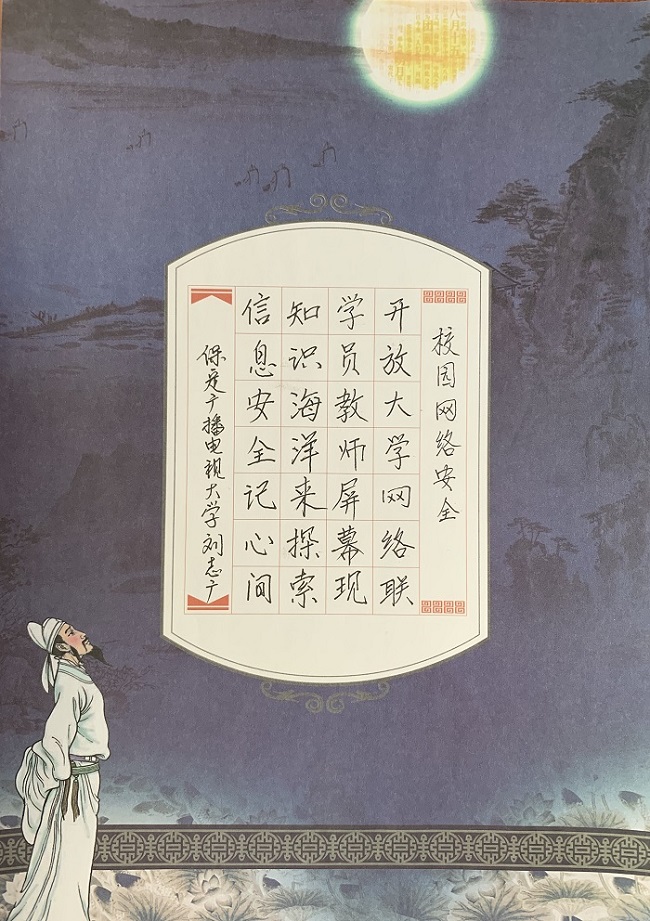 校园网络安全
开放大学网络联
学员教师屏幕现
知识海洋来探索
信息安全记心间
保定广播电视大学刘志广